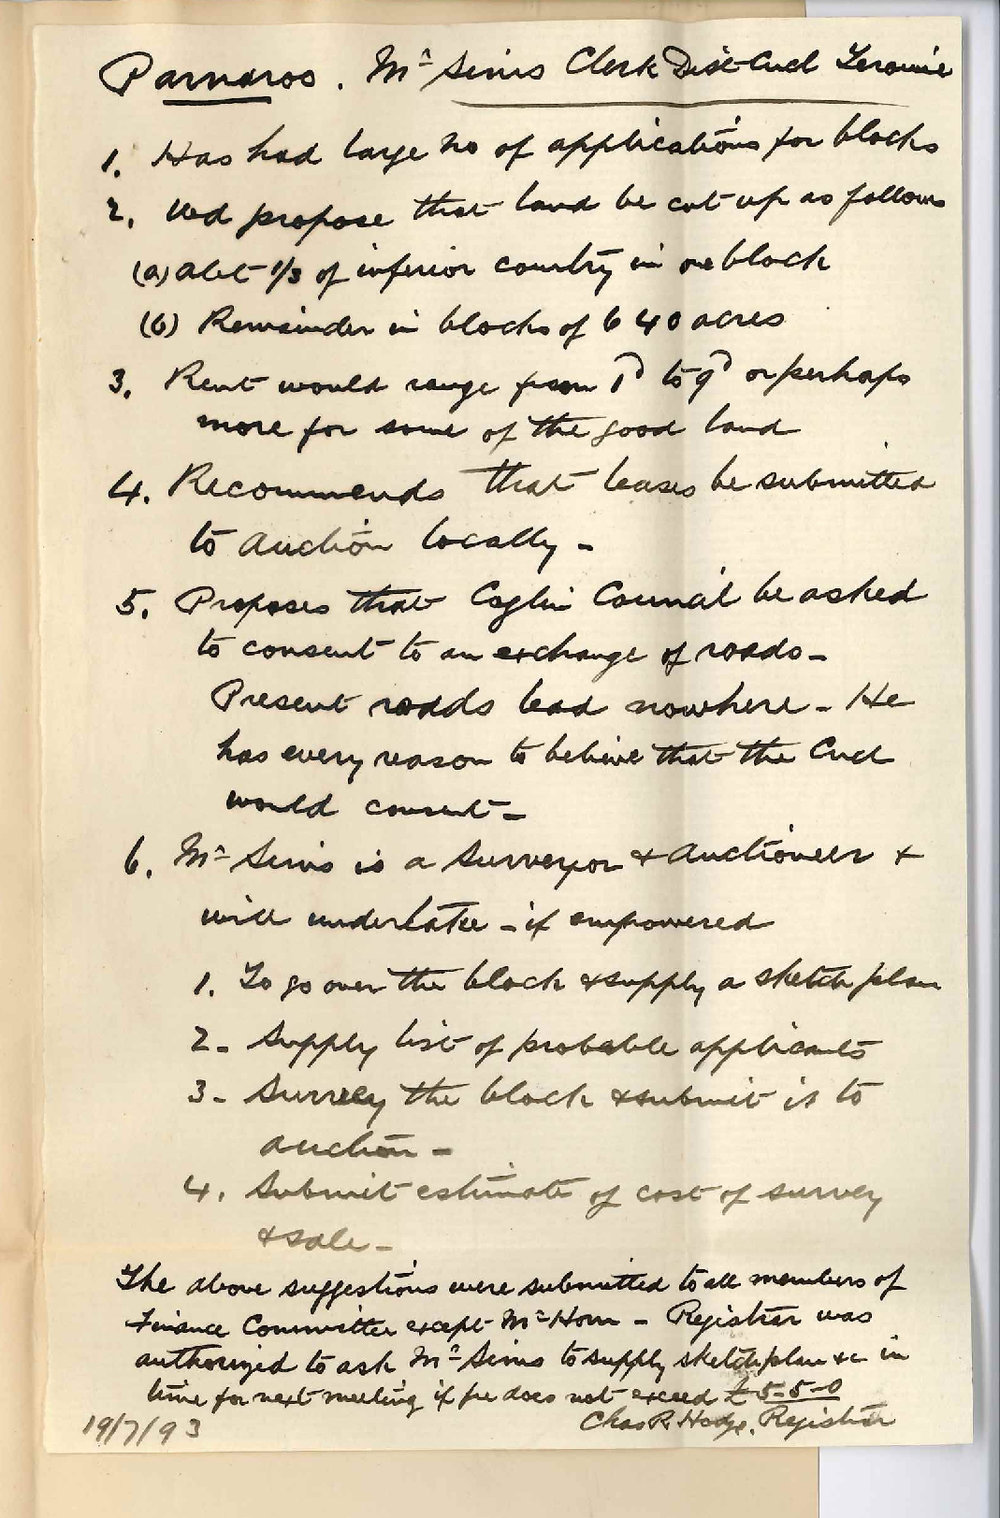 Parnaroo. Mr Sims Clerk Dist Cncl Terowie
1. Has had large no of applications for blocks
2. Wd propose that land be cut up as follows
(a) Abt 1/3 of inferior country in one block
(b) Remainder in blocks of 640 acres
3. Rent would range from 1d to 9d or perhaps
more for some of the good land
4. Recommends that leases be submitted
to auction locally -
5. Proposes that Coglin Council be asked
to consent to an exchange of roads -
Present roads lead nowhere - He
has every reason to believe that the Cncl
would consent -
6. Mr Sims is a surveyor & auctioneer &
will undertake - if empowered
1. To go over the block & supply a sketch plan
2 - Supply list of probable applicants
3 - Survey the block & submit it to
auction -
4. Submit estimate of cost of survey
& sale -
The above suggestions were submitted to all members of
Finance Committee except Mr Horn - Registrar was
authorized to ask Mr Sims to supply sketch plan &c in
time for next meeting if fee does not exceed £5-5-0
Chas R Hodge, Registrar
19/7/93